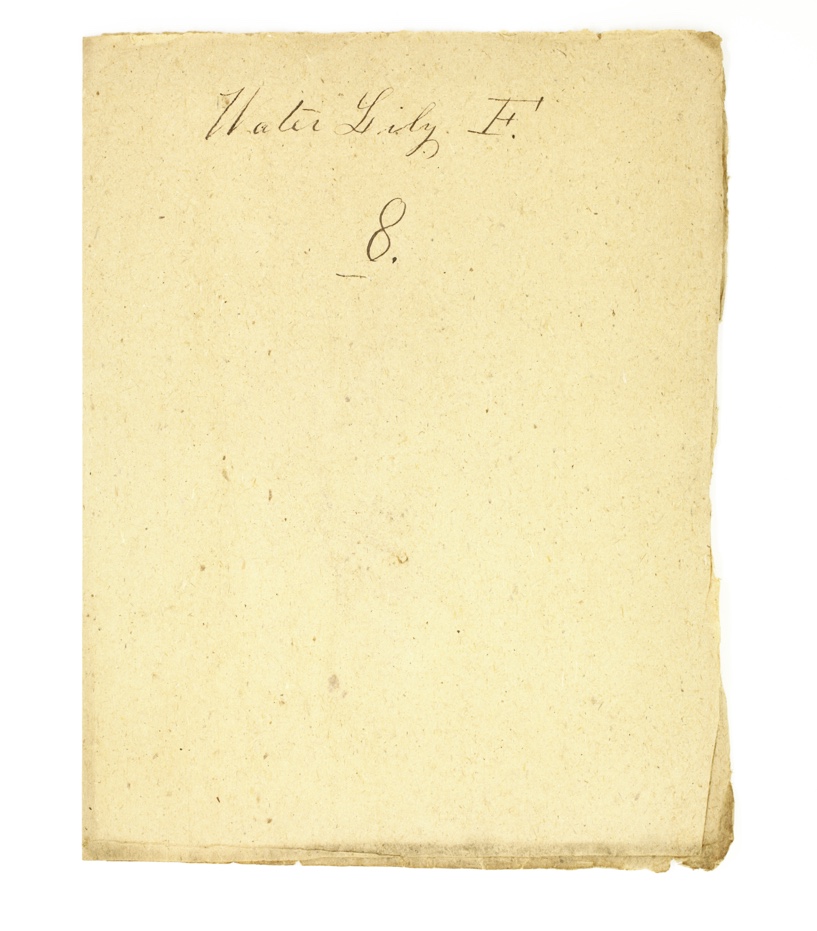 Water Lily. F.
8.